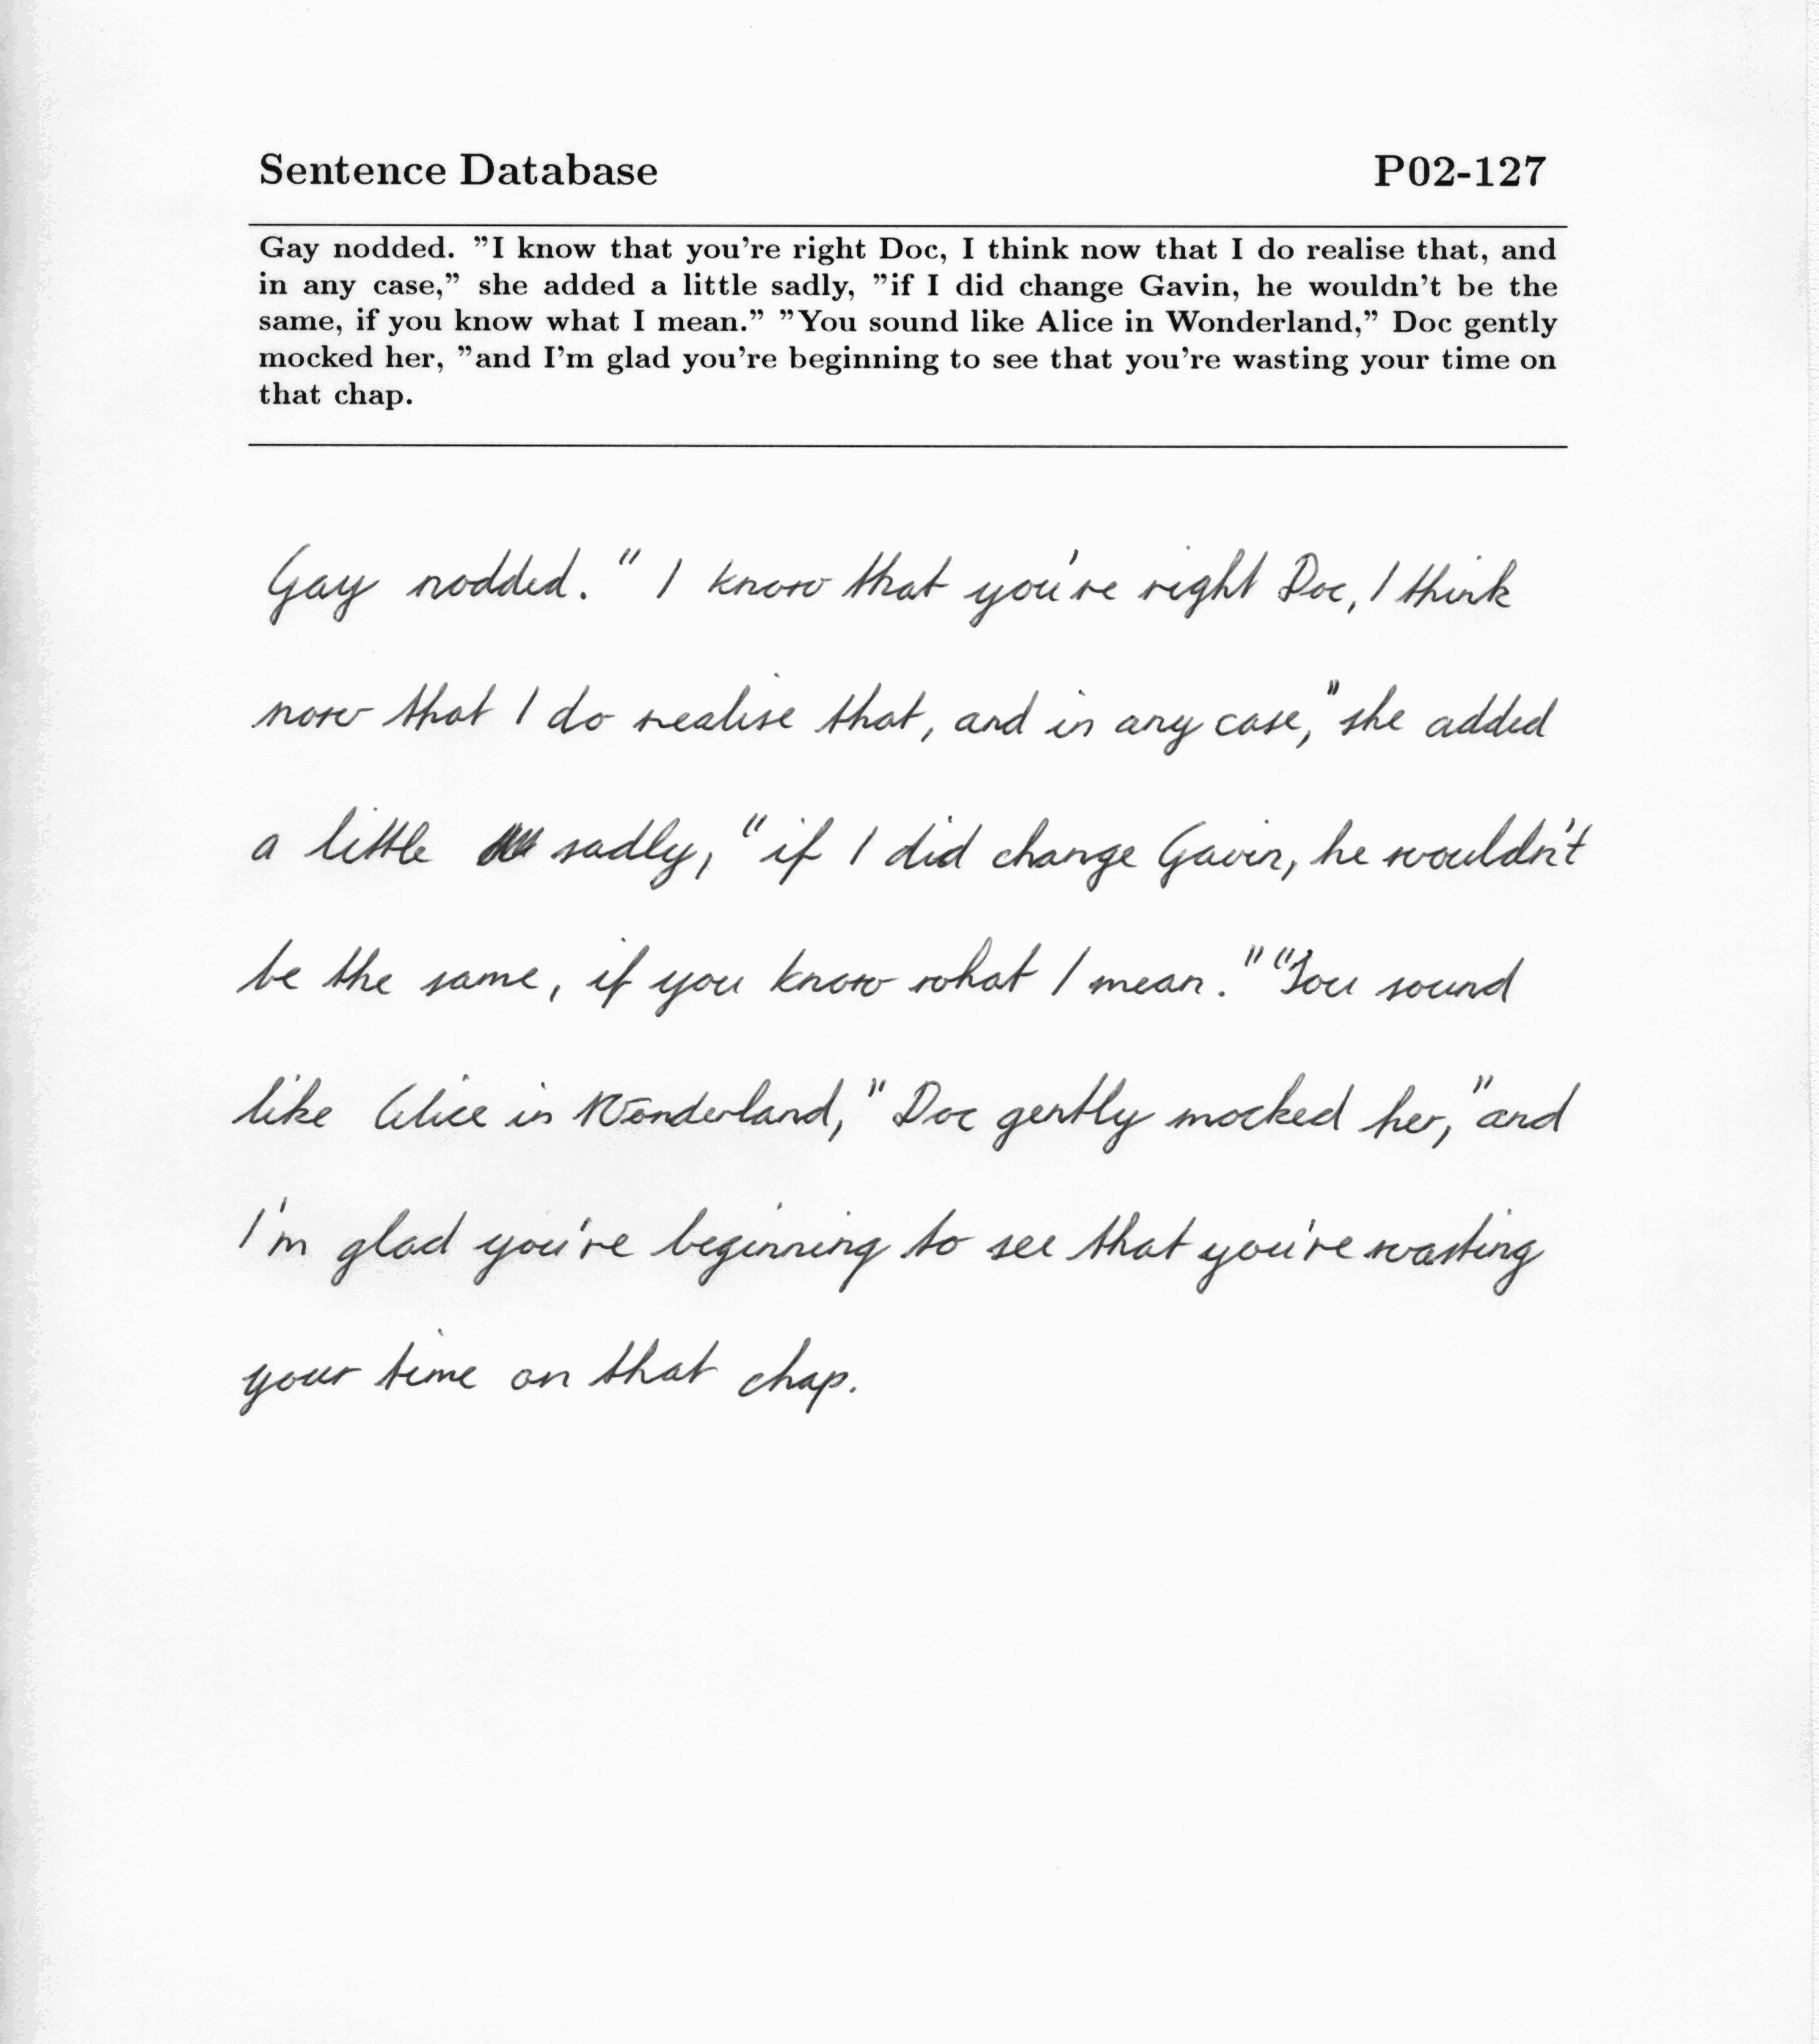 Sentence Database P02-127
Gay nodded. "I know that you're right Doc, I think now that I do realise that, and
in any case," she added a little sadly, "if I did change Gavin, he wouldn't be the
same, if you know what I mean." "You sound like Alice in Wonderland," Doc gently
mocked her, "and I'm glad you're beginning to see that you're wasting your time on
that chap.
Gay nodded. "I know that you're right Doc, I think
now that I do realise that, and in any case," she added
a little sadly, "if I did change Gavin, he wouldn't
be the same, if you know what I mean." "You sound
like Alice in Wonderland," Doc gently mocked her, "and
I'm glad you're beginning to see that you're wasting
your time on that chap.